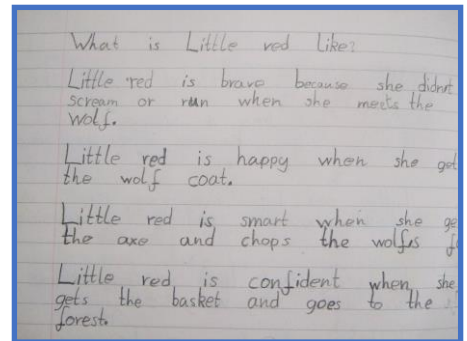 What is Little red like?
Little red is brave because she didn't
scream or run when she meets the
wolf.
Little red is happy when she get
the wolf coat.
Little red is smart when she ge
the axe and chops the wolfs
Little red is confident when she
gets the basket and goes to the
forest.